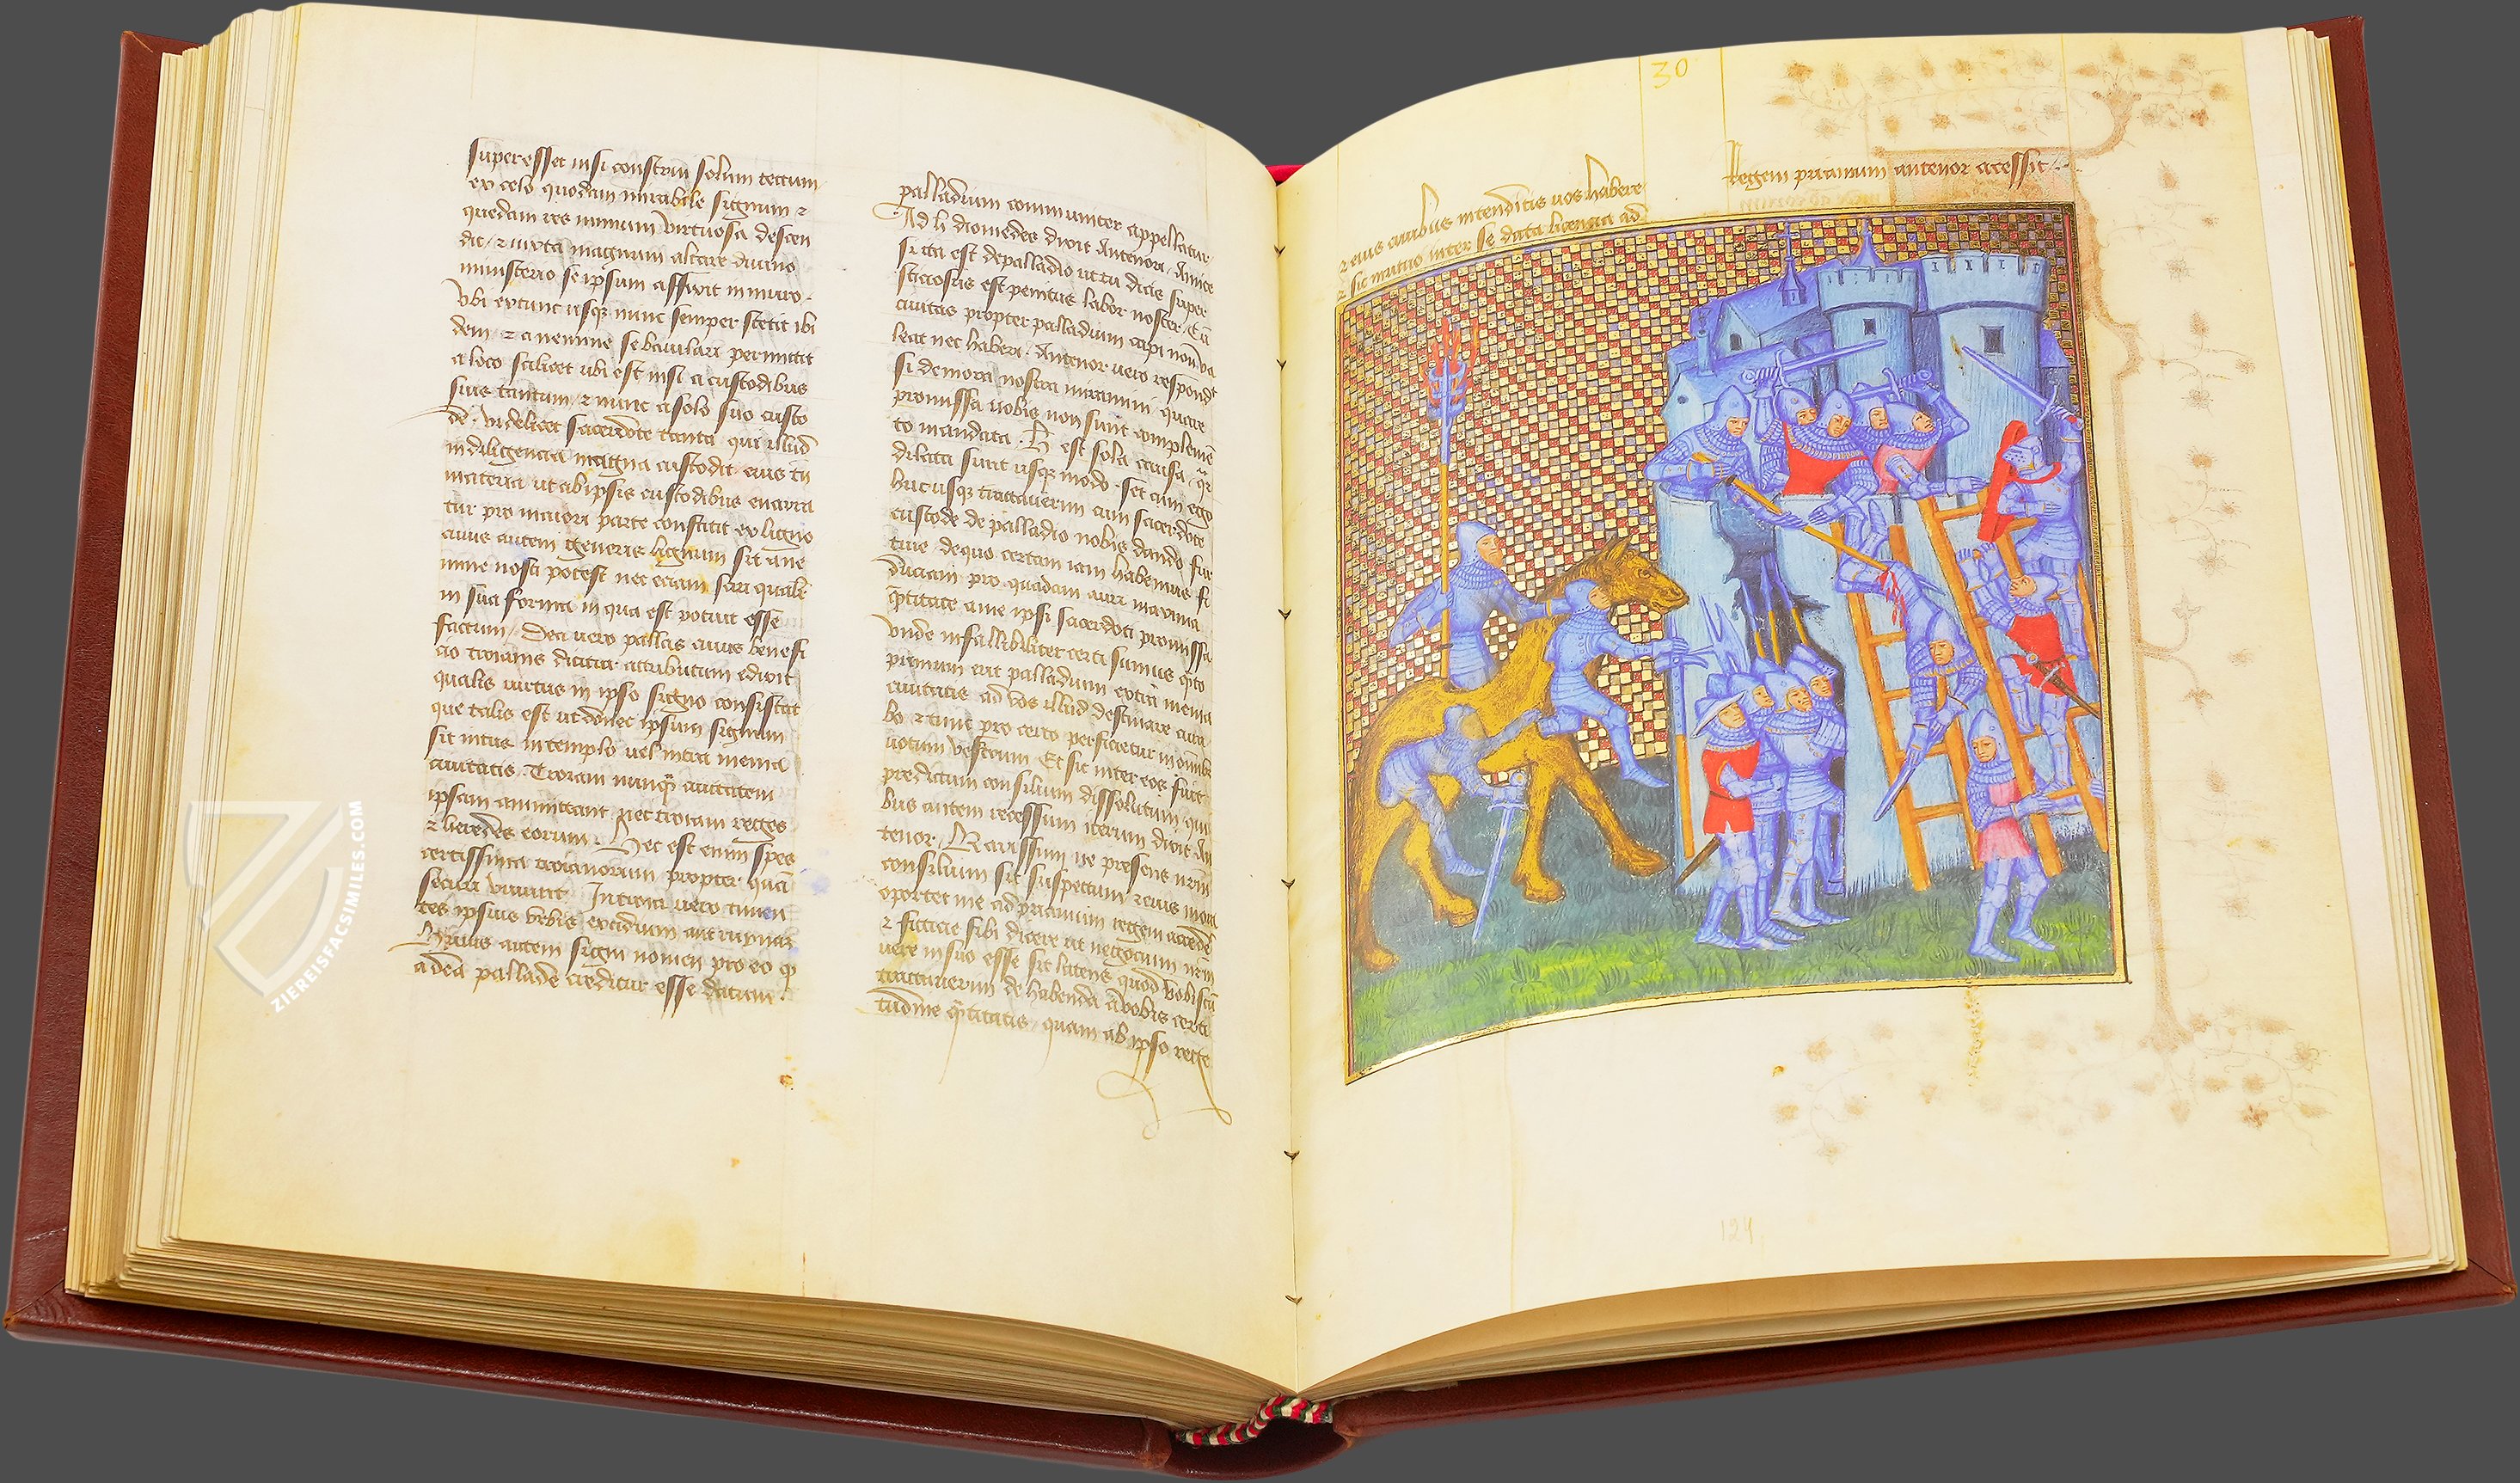 superesset nisi construi solum tectum
ex celo quodam mirabile signum ⁊
quedam res nimium virtuosa descen
dit / ⁊ iuxta magnum altare diuino
ministerio se ipsum affixit in muro .
Vbi extunc usqꝫ nunc semper stetit ibi
dem / ⁊ a nemine se baiulari permittit
a loco scilicet ubi est nisi a custodibus
suis tantum / ⁊ nunc a solo suo custo
de . videlicet sacerdote qui illud
in diligencia magna custodit eius tn̄
materia ut ab ipsis custodibus enarra
tur pro maiori parte constitit ex ligno
cuius autem generis lignum sit a ne
mine nosci potest nec eciam sciri
in sua forma in qua est potuit esse
factum / Dea vero pallas cuius benefi
cio troianis dicitur attributum edixit
qualis virtus in ipso signo consistat
que talis est ut donec ipsum signum
sit intus in templo vel intra menia
ciuitatis . Troiam nunq̄ ciuitatem
ipsam ammittant nec troiani reges
⁊ heredes eorum . Hec est enim spes
certissima troianorum propter quā
securi viuunt vero timen
tes ipsius vrbis excidium aut
Huius autem signi nomen pro eo q̄
a dea pallade creditur esse datum .
palladium communiter appellatur
Ad h̄ diomedes dixit Antenori . Amice
si ita est de palladio ut tu dicis super
est penitus labor noster
ciuitas propter palladium capi non va
leat nec haberi . Antenor vero respondt
si demora nostra miramini quare
promissa vobis non sunt complemē
to mandata . H̄ est sola causa qr̄
dilata sunt usqꝫ modo . set cum ego
huc usqꝫ tractauerim cum sacerdote
custode de palladio nobis dando fur
tiue de quo certam iam habemus fi
duciam pro quadam auri maxima
q̄titate a me ipsi sacerdoti promissa
Vnde infallibiliter certi sumus qto
primum erit palladium extra menia
ciuitatis ad vos illud destinare cura
bo ⁊ tunc pro certo perficietur in omnibꝫ
votum vestrum Et sic inter eos fuit
predictum consilium dissolutum qui
bus autem recessum iterum dixit An
tenor . ne presens nrm̄
consilium sit suspectum
oportet me ad priamum regem accede
⁊ sibi dicere ut negocium nrm̄
vere in suo esse sit latens quod vobiscū
tractauerim de habenda a vobis certi
tudine q̄titatis / quam ab ipso rege
30
⁊ eius ciuibus intenditis vos habere
⁊ sic mutuo inter se data licencia ad
Regem priamum antenor accessit .
124
ZIEREISFACSIMILES.COM